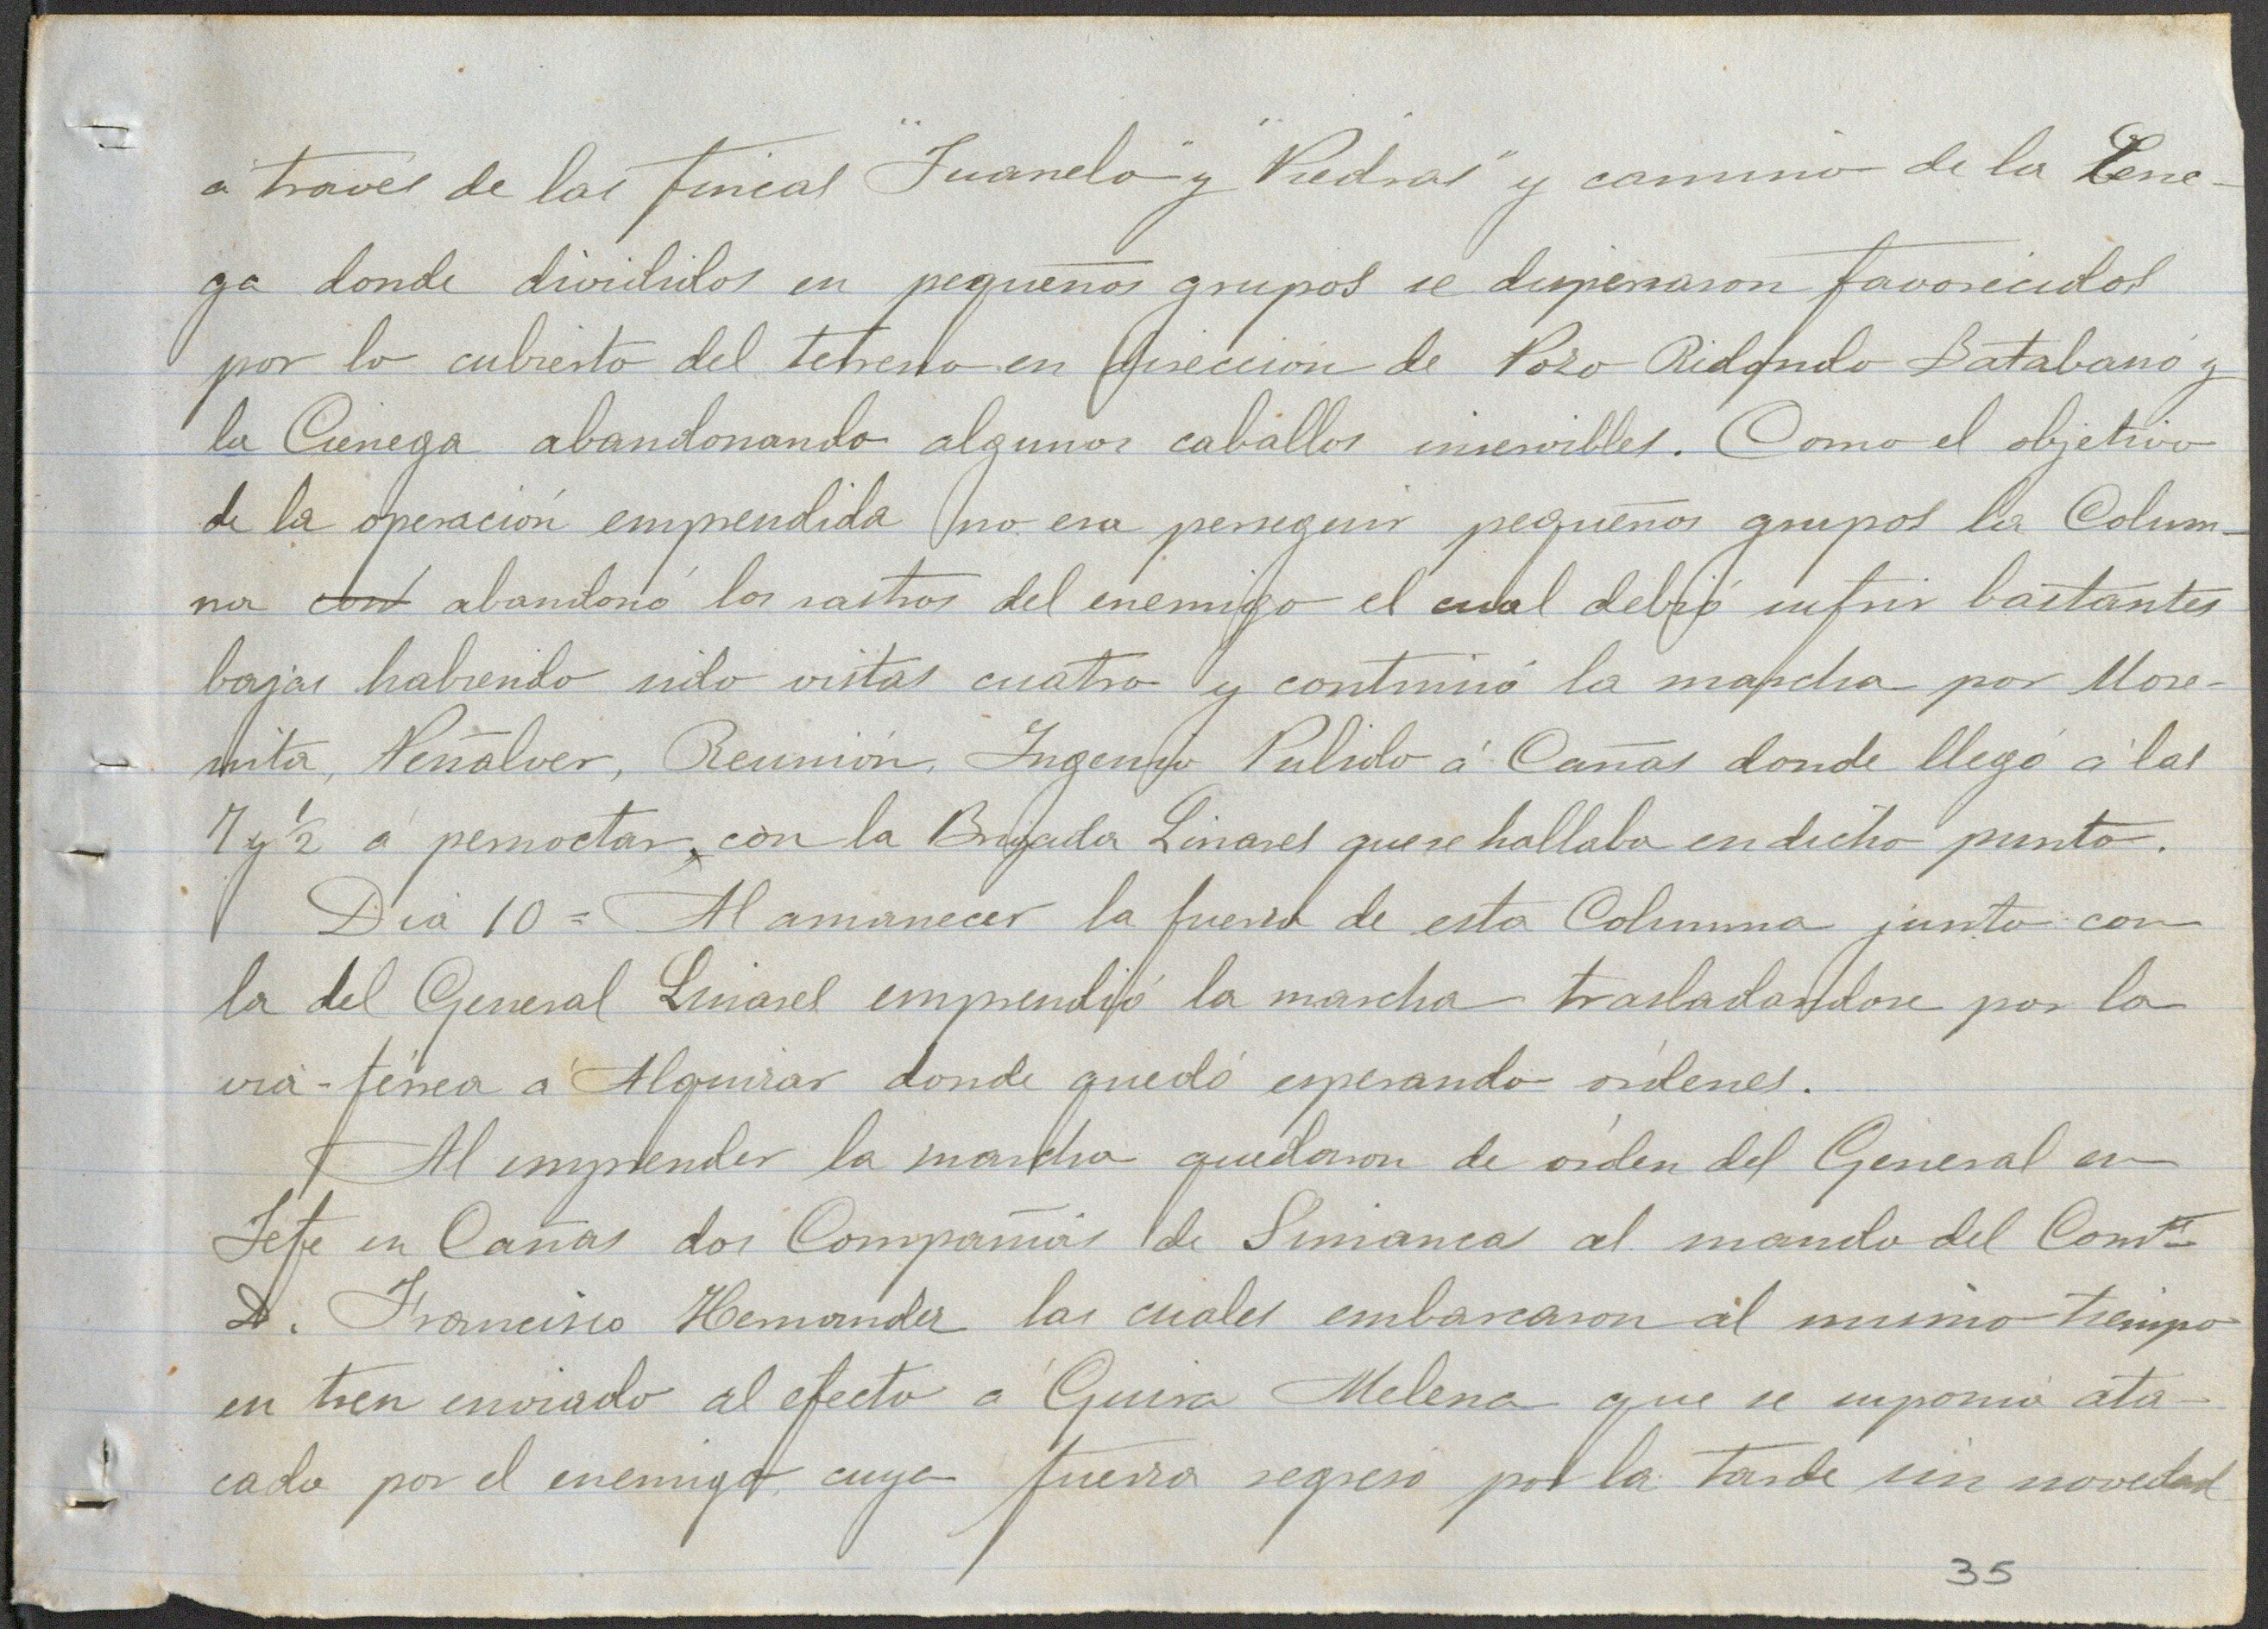 á través de las fincas "Juanelo" y "Piedras" y camino de la Cene-
ga donde divididos en pequeños grupos se dispersaron favorecidos
por lo cubierto del terreno en dirección de Pozo Ridondo Batabanó y
la Cienega abandonando algunos caballos inservibles. Como el objetivo
de la operación emprendida no era perseguir pequeños grupos la Colum-
na con abandonó los rastros del enemigo el cual debió sufrir bastantes
bajas habiendo sido vistas cuatro y continuó la marcha por More-
nita, Peñalver, Reunión, Ingenio Pulido á Cañas donde llegó á las
7 y ½ á pernoctar, con la Brigada Linares que se hallaba en dicho punto.
Dia 10 = Al amanecer la fuerza de esta Columna junto con
la del General Linares emprendió la marcha trasladandose por la
via-férrea á Alquizar donde quedó esperando órdenes.
Al emprender la marcha quedaron de órden del General en
Jefe en Cañas dos Compañías de Simancas al mando del Comte
D. Francisco Hernandez las cuales embarcaron al mismo tiempo
en tren enviado al efecto á Guira Melena que se suponía ata-
cado por el enemigo cuya fuerza regresó por la tarde sin novedad
35